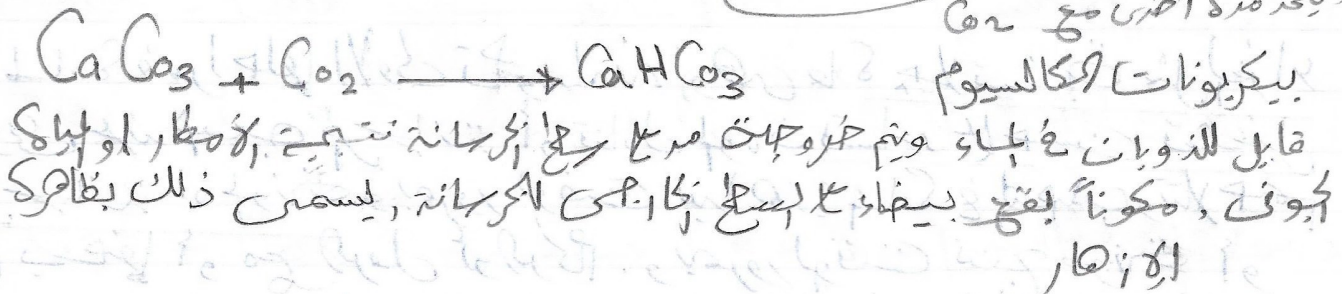 مع Co2
CaCo3 + Co2 → CaHCo3 بيكربونات الكالسيوم
قابل للذوبان في الماء ويتم خروجة من على سطح الخرسانة نتيجة الأمطار او المياة
الجوفى، مكوناً بقع بيضاء على السطح الخارجى للخرسانة, ليسمى ذلك بظاهرة
الإزهار